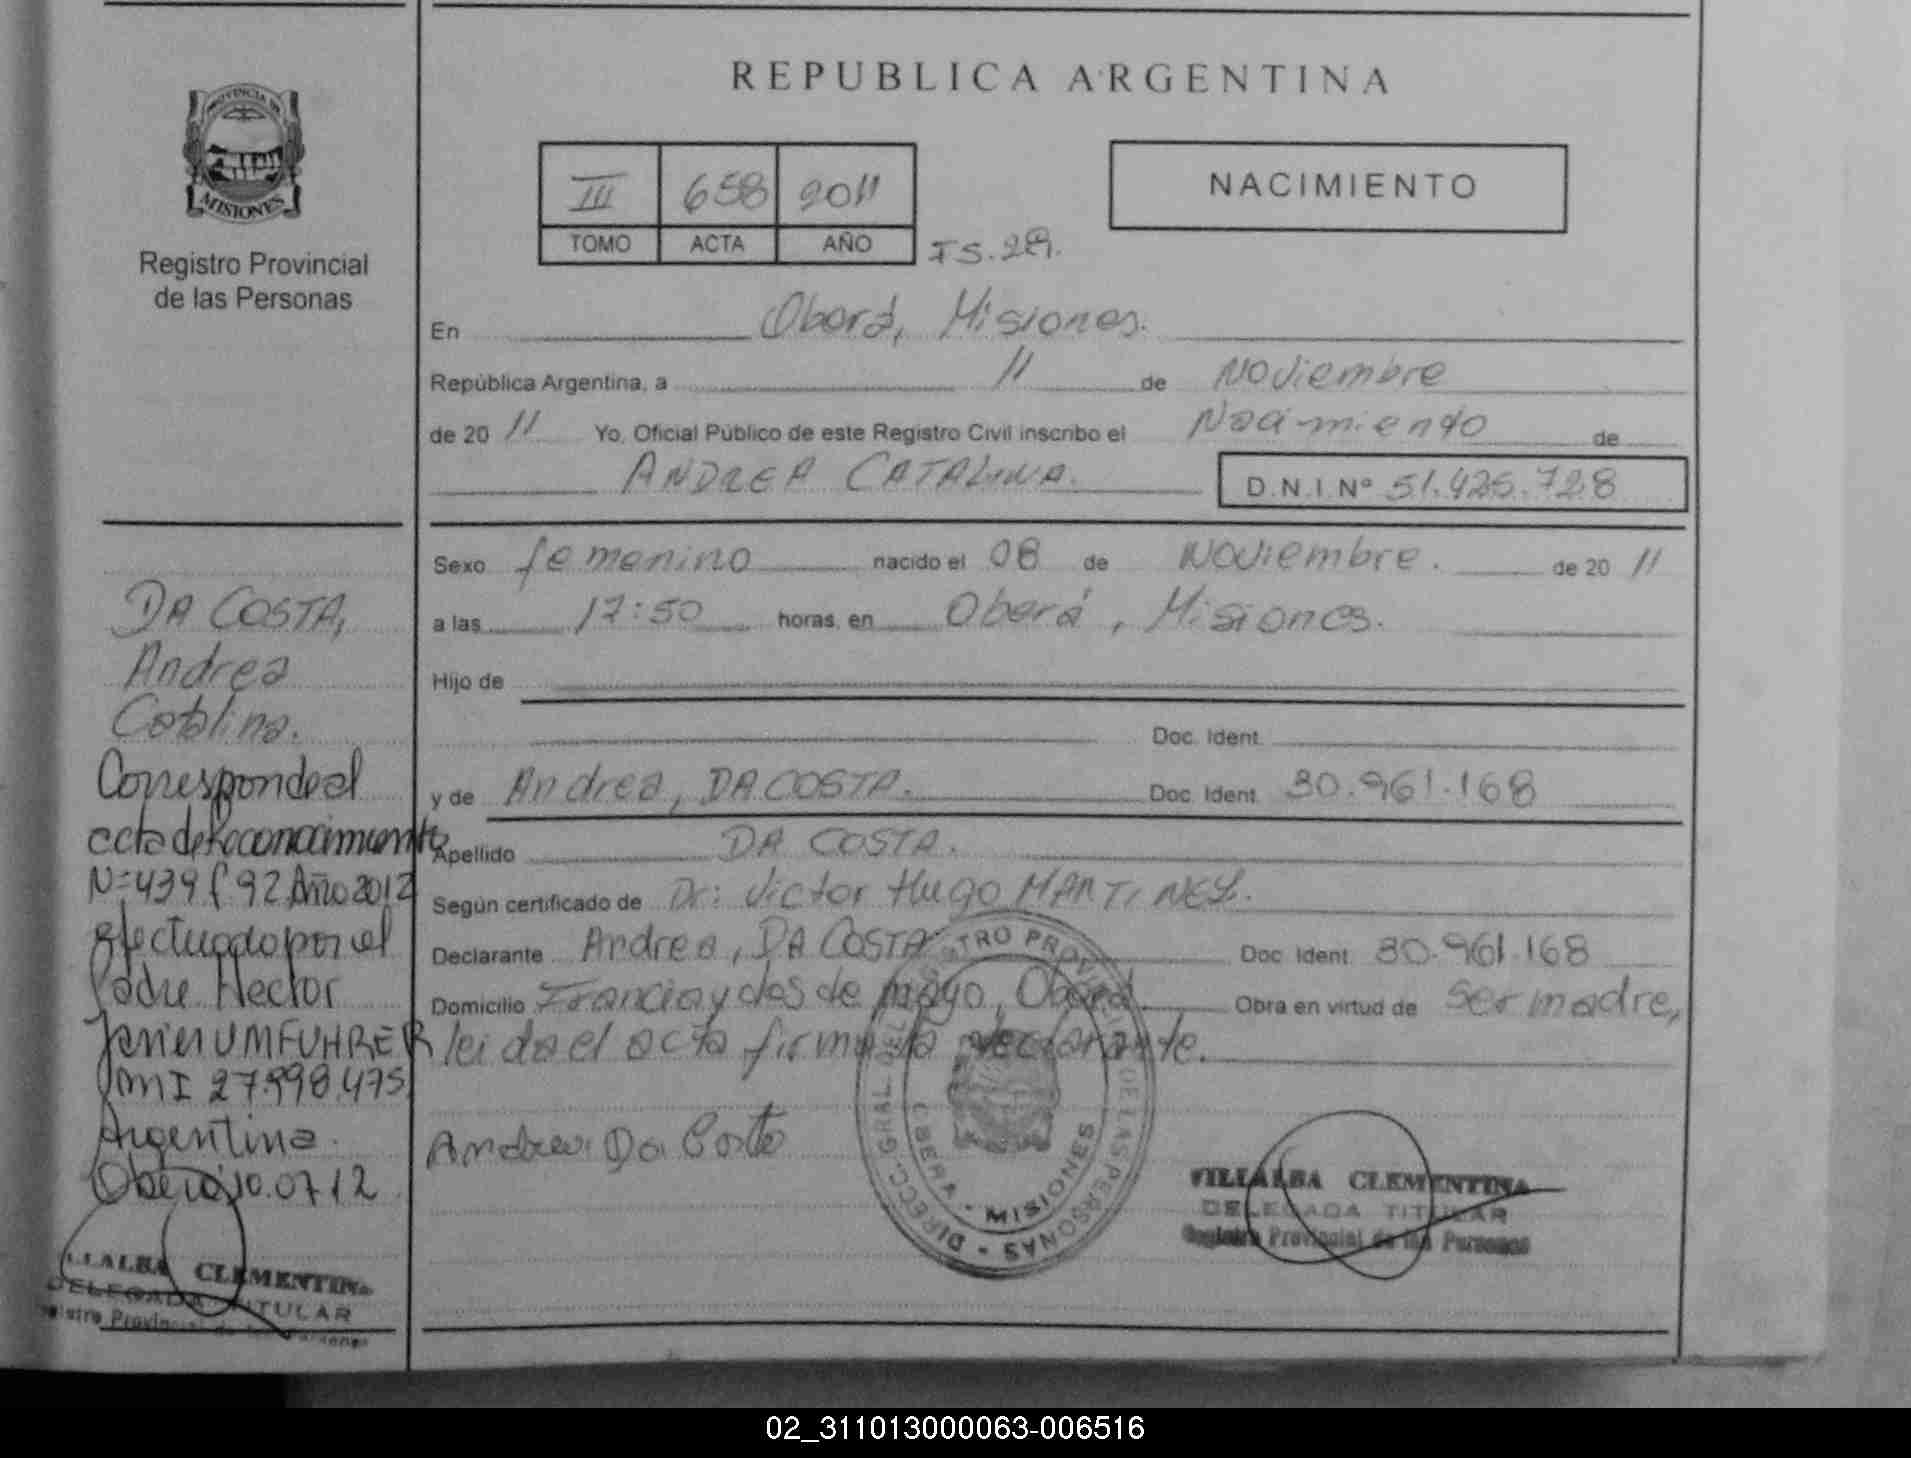 REPUBLICA ARGENTINA
PROVINCIA DE
MISIONES
Registro Provincial
de las Personas
III 658 2011
TOMO ACTA AÑO
NACIMIENTO
En Oberá, Misiones.
República Argentina, a 11 de Noviembre
de 20 11 Yo, Oficial Público de este Registro Civil inscribo el Nacimiento de
ANDREA CATALINA. D.N.I. Nº 51.425.728
Sexo femenino nacido el 08 de Noviembre. de 20 11
a las 17:50 horas, en Oberá, Misiones.
Hijo de
Doc. Ident.
y de Andrea, DA COSTA. Doc. Ident. 30.961.168
Apellido DA COSTA.
Según certificado de Dr: Victor Hugo MARTINEZ.
Declarante Andrea, DA COSTA Doc. Ident. 30.961.168
Domicilio Francia y dos de mayo, Oberá Obra en virtud de ser madre,
leida el acta firma la declarante.
Andrea Da Costa
DIRECC. GRAL. DEL REGISTRO PROVINCIAL DE LAS PERSONAS
OBERA - MISIONES
VILLALBA CLEMENTINA
DELEGADA TITULAR
Registro Provincial de las Personas
DA COSTA,
Andrea
Catalina.
Corresponde al
acta de Reconocimiento
Nº 439 f 92 Año 2012
efectuado por el
Padre Hector
Javier UMFUHRER
DNI 27.998.475
Argentina.
Oberá 10.07.12
VILLALBA CLEMENTINA
DELEGADA TITULAR
Registro Provincial de las Personas
02_311013000063-006516